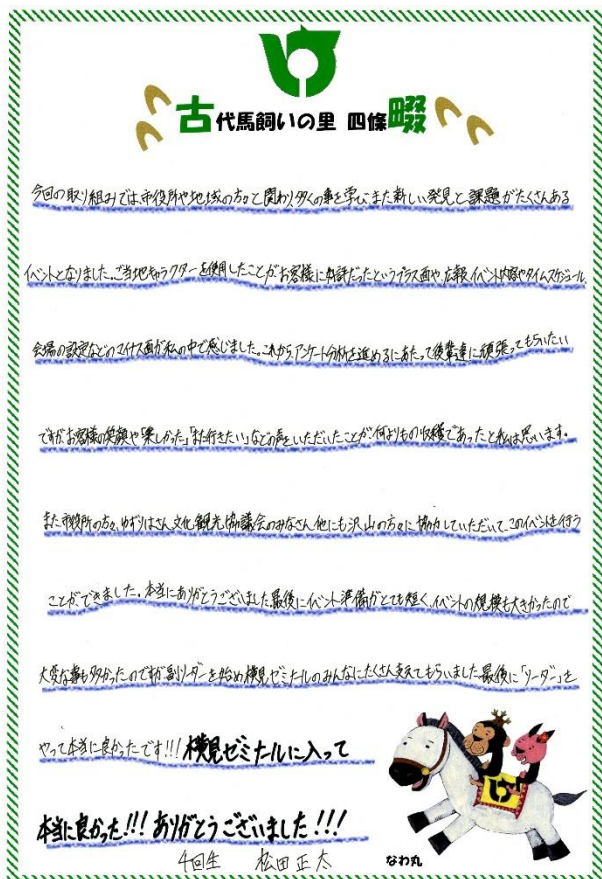 古代馬飼いの里 四條畷
今回の取り組みでは、市役所や地域の方々と関わり多くの事を学び、また新しい発見と課題がたくさんある
イベントとなりました。ご当地キャラクターを使用したことがお客様に好評だったというプラス面や、広報、イベント内容やタイムスケジュール、
会場の設定などのマイナス面が私の中で感じました。これから、アンケート分析を進めるにあたって後輩達に頑張ってもらいたい
ですが、お客様の笑顔や「楽しかった」「また行きたい」などの声をいただいたことが、何よりもの収穫であったと私は思います。
また市役所の方々、ゆずりはさん、文化観光協議会のみなさん、他にも沢山の方々に協力していただいて、このイベントを行う
ことができました。本当にありがとうございました。最後にイベント準備がとても短く、イベントの規模も大きかったので
大変な事も多かったのですが、副リーダーを始め横見ゼミナールのみんなにたくさん支えてもらいました。最後に「リーダー」を
やって本当に良かったです!!! 横見ゼミナールに入って
本当に良かった!!! ありがとうございました!!!
4回生 松田正太
なわ丸